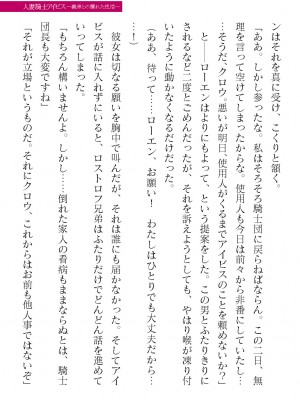 人妻騎士アイビス―義弟との爛れた性活―
ンはそれを真に受け、こくりと頷く。
「ああ。しかし参ったな。私はそろそろ騎士団に戻らねばならん。この二日、無
理を言って空けてしまったからな。使用人も今日は前々から非番にしていたし…
…そうだ、クロウ。悪いが明日、使用人がくるまでアイビスのことを頼めないか？」
と――ローエンはよりにもよって、という提案をした。この男とふたりきりに
されるなど二度とごめんだったが、それを訴えようとしても、やはり喉が凍り付
いたように動かなくなるだけだった。
（ああ、待って……ローエン、お願い！　わたしはひとりでも大丈夫だから――
…！）
彼女は切なる願いを胸中で叫んだが、それは誰にも届かなかった。そしてアイ
ビスが話に入れずにいると、ロストロフ兄弟はふたりだけでどんどん話を進めて
「もちろん構いませんよ。しかし……倒れた家人の看病もままならぬとは、騎士
団長も大変ですね」
「それが立場というものだ。それにクロウ、これからはお前も他人事ではないぞ」